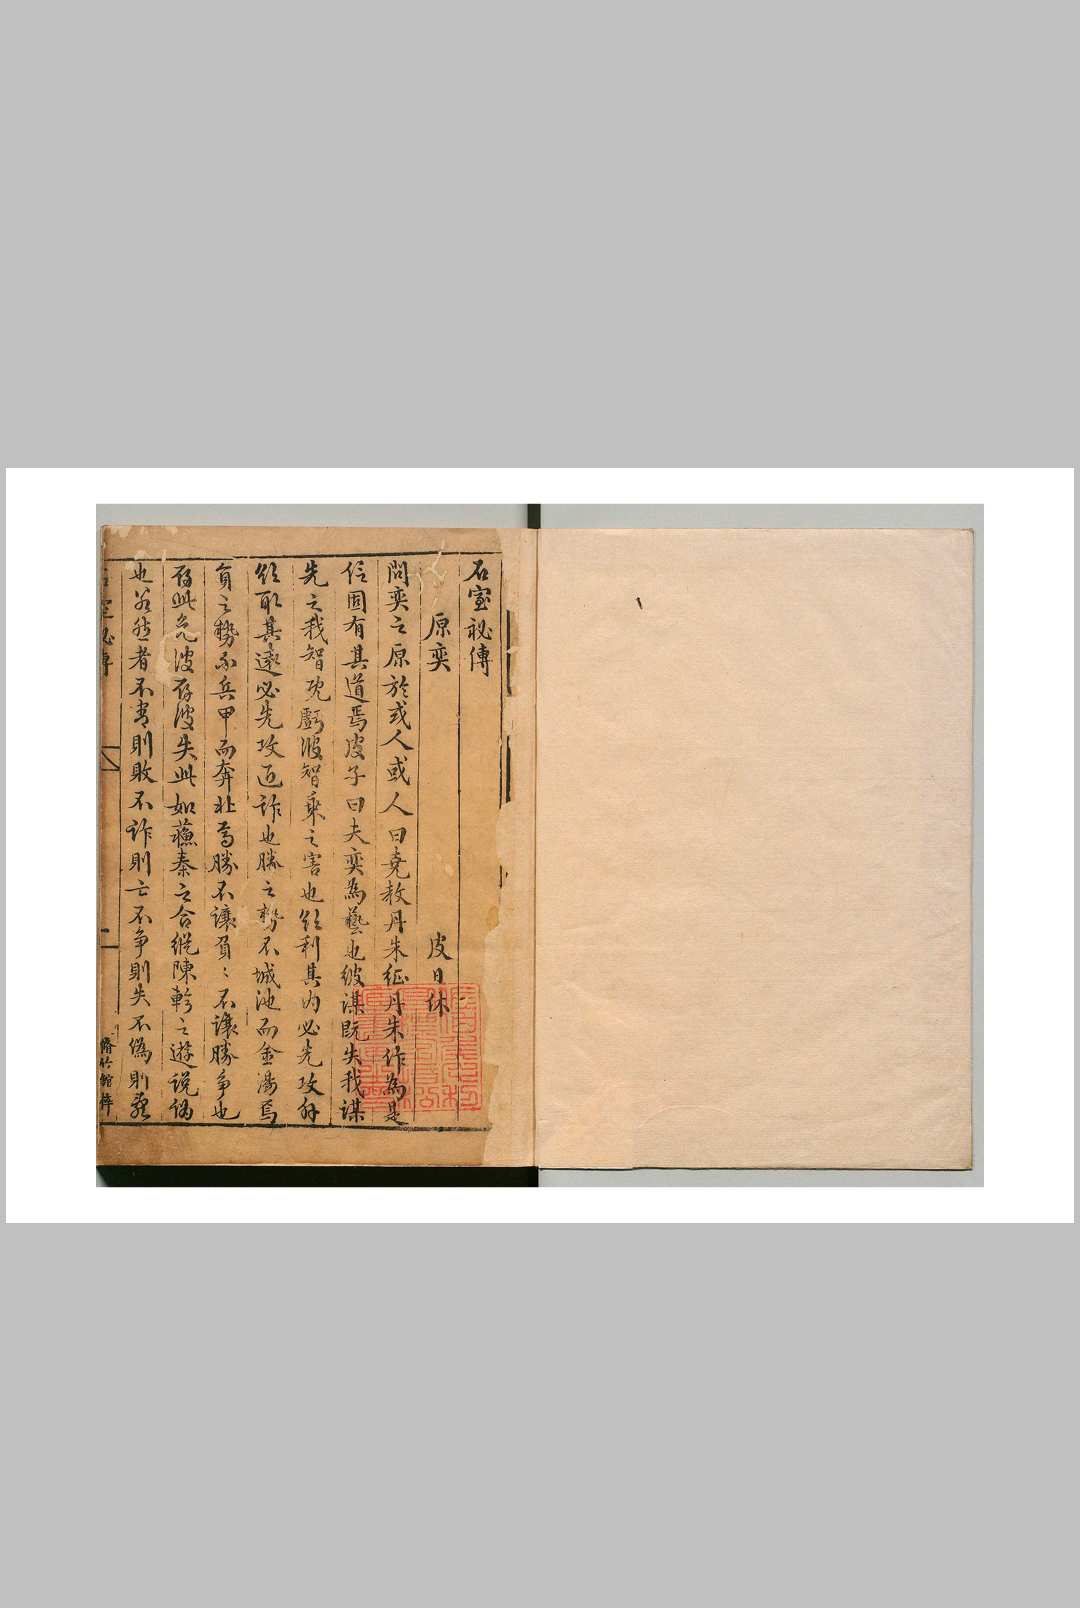 石室祕傳
原奕 皮日休
問奕之原於或人或人曰堯教丹朱征丹朱作為是
信固有其道焉皮子曰夫奕為藝也彼謀既失我謀
先之我智既虧彼智乘之害也欲利其內必先攻外
欲取其遠必先攻近詐也勝之勢不城池而金湯焉
負之勢不兵甲而奔北焉勝不讓負〻不讓勝爭也
存此免彼存彼失此如蘇秦之合縱陳軫之遊說偽
也若然者不害則敗不詐則亡不爭則失不偽則亂
石室祕傳
脩竹館梓